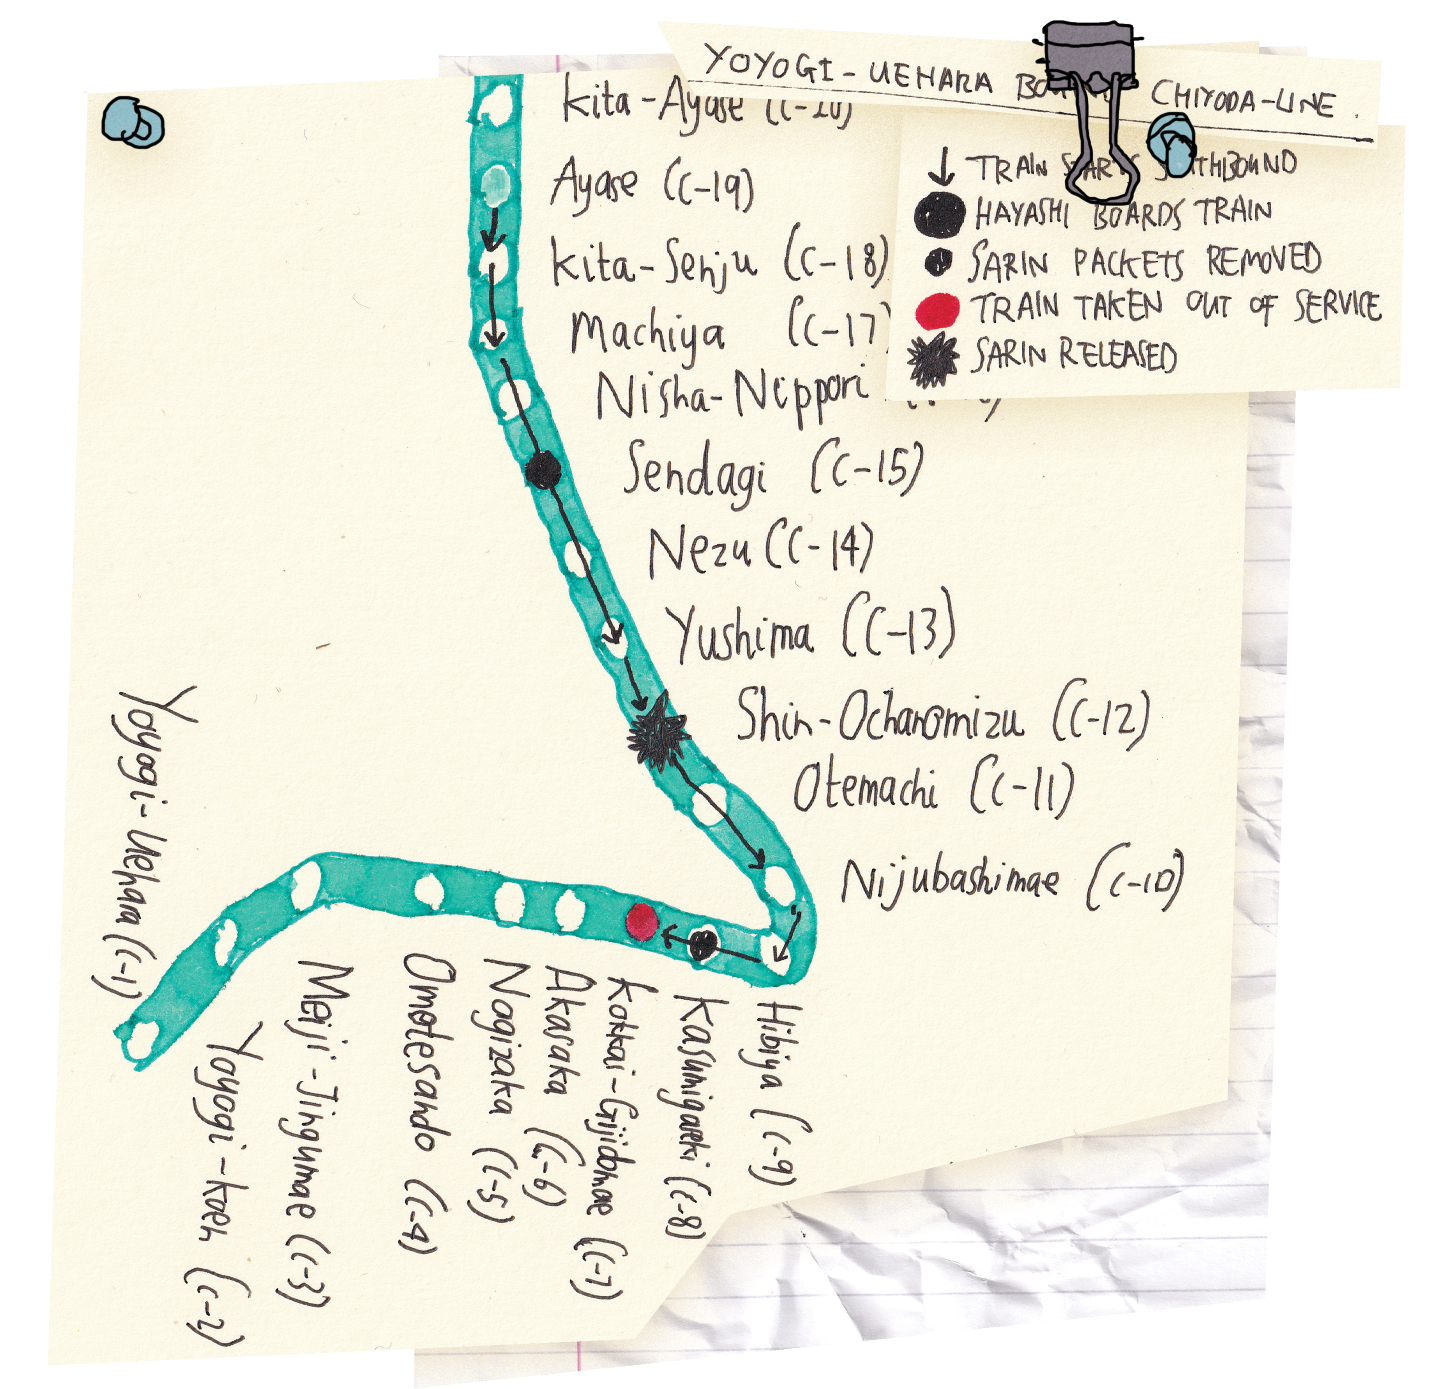 YOYOGI-UEHARA CHIYODA-LINE.
TRAIN STARTS SOUTHBOUND
HAYASHI BOARDS TRAIN
SARIN PACKETS REMOVED
TRAIN TAKEN OUT OF SERVICE
SARIN RELEASED
Kita-Ayase (C-20)
Ayase (C-19)
Kita-Senju (C-18)
Machiya (C-17)
Nisha-Nippori
Sendagi (C-15)
Nezu (C-14)
Yushima (C-13)
Shin-Ochanomizu (C-12)
Otemachi (C-11)
Nijubashimae (C-10)
Hibiya (C-9)
Kasumigaseki (C-8)
Kokkai-Gijidomae (C-7)
Akasaka (C-6)
Nogizaka (C-5)
Omotesando (C-4)
Meiji-Jingumae (C-3)
Yoyogi-Koen (C-2)
Yoyogi-Uehara (C-1)